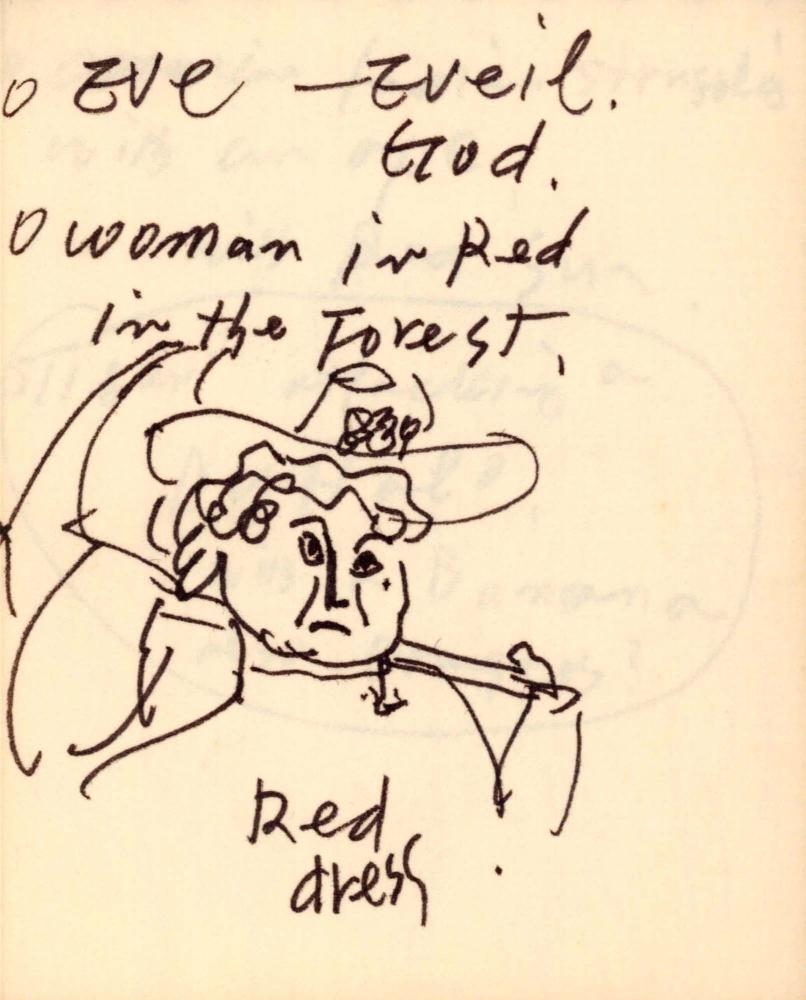 o Eve — Eveil.
God.
o woman in Red
in the Forest.
Red
dress